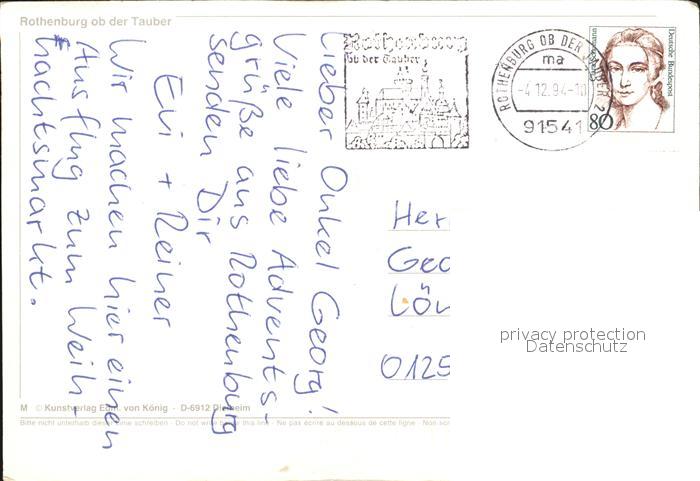 Rothenburg ob der Tauber
Lieber Onkel Georg!
Viele liebe Advents-
grüße aus Rothenburg
senden Dir
Evi + Reiner
Wir machen hier einen
Ausflug zum Weih-
nachtsmarkt.
Rothenburg
ob der Tauber
ROTHENBURG OB DER TAUBER 2
ma
-4.12.94-10
91541
Deutsche Bundespost
80
Her
Geo
Lön
0125
privacy protection
Datenschutz
M © Kunstverlag Edm. von König · D-6912 Dielheim
Bitte nicht unterhalb dieser Linie schreiben · Do not write below this line · Ne pas écrire au dessous de cette ligne · Non scr